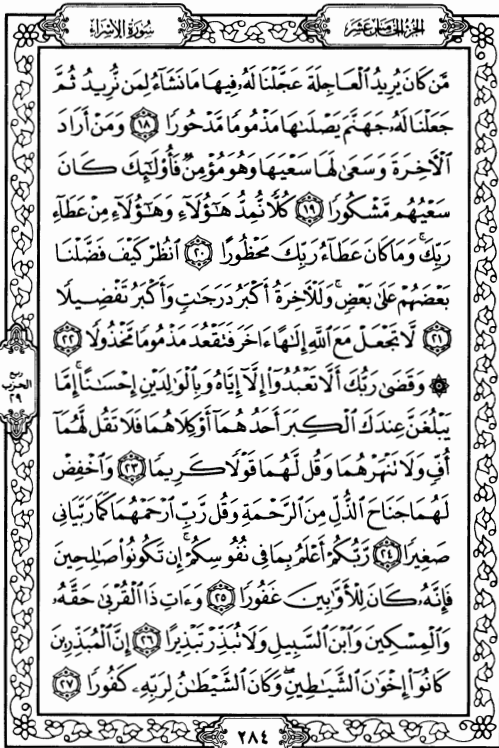 الجزء الخامس عشر
سورة الإسراء
مَّن كَانَ يُرِيدُ ٱلْعَاجِلَةَ عَجَّلْنَا لَهُۥ فِيهَا مَا نَشَآءُ لِمَن نُّرِيدُ ثُمَّ
جَعَلْنَا لَهُۥ جَهَنَّمَ يَصْلَىٰهَا مَذْمُومًا مَّدْحُورًا ١٨ وَمَنْ أَرَادَ
ٱلْـَٔاخِرَةَ وَسَعَىٰ لَهَا سَعْيَهَا وَهُوَ مُؤْمِنٌ فَأُو۟لَـٰٓئِكَ كَانَ
سَعْيُهُم مَّشْكُورًا ١٩ كُلًّا نُّمِدُّ هَـٰٓؤُلَآءِ وَهَـٰٓؤُلَآءِ مِنْ عَطَآءِ
رَبِّكَ ۚ وَمَا كَانَ عَطَآءُ رَبِّكَ مَحْظُورًا ٢٠ ٱنظُرْ كَيْفَ فَضَّلْنَا
بَعْضَهُمْ عَلَىٰ بَعْضٍ ۚ وَلَلْـَٔاخِرَةُ أَكْبَرُ دَرَجَـٰتٍ وَأَكْبَرُ تَفْضِيلًا
٢١ لَّا تَجْعَلْ مَعَ ٱللَّهِ إِلَـٰهًا ءَاخَرَ فَتَقْعُدَ مَذْمُومًا مَّخْذُولًا ٢٢
۞ وَقَضَىٰ رَبُّكَ أَلَّا تَعْبُدُوٓا۟ إِلَّآ إِيَّاهُ وَبِٱلْوَٰلِدَيْنِ إِحْسَـٰنًا ۚ إِمَّا
يَبْلُغَنَّ عِندَكَ ٱلْكِبَرَ أَحَدُهُمَآ أَوْ كِلَاهُمَا فَلَا تَقُل لَّهُمَآ
أُفٍّ وَلَا تَنْهَرْهُمَا وَقُل لَّهُمَا قَوْلًا كَرِيمًا ٢٣ وَٱخْفِضْ
لَهُمَا جَنَاحَ ٱلذُّلِّ مِنَ ٱلرَّحْمَةِ وَقُل رَّبِّ ٱرْحَمْهُمَا كَمَا رَبَّيَانِى
صَغِيرًا ٢٤ رَّبُّكُمْ أَعْلَمُ بِمَا فِى نُفُوسِكُمْ ۚ إِن تَكُونُوا۟ صَـٰلِحِينَ
فَإِنَّهُۥ كَانَ لِلْأَوَّٰبِينَ غَفُورًا ٢٥ وَءَاتِ ذَا ٱلْقُرْبَىٰ حَقَّهُۥ
وَٱلْمِسْكِينَ وَٱبْنَ ٱلسَّبِيلِ وَلَا تُبَذِّرْ تَبْذِيرًا ٢٦ إِنَّ ٱلْمُبَذِّرِينَ
كَانُوٓا۟ إِخْوَٰنَ ٱلشَّيَـٰطِينِ ۖ وَكَانَ ٱلشَّيْطَـٰنُ لِرَبِّهِۦ كَفُورًا ٢٧
ربع
الحزب
٢٩
٢٨٤